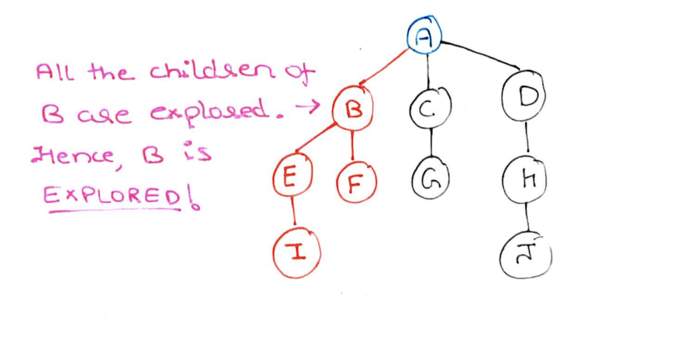 A
All the children of
B are explored. →
B
C
D
Hence, B is
EXPLORED!
E
F
G
H
I
J